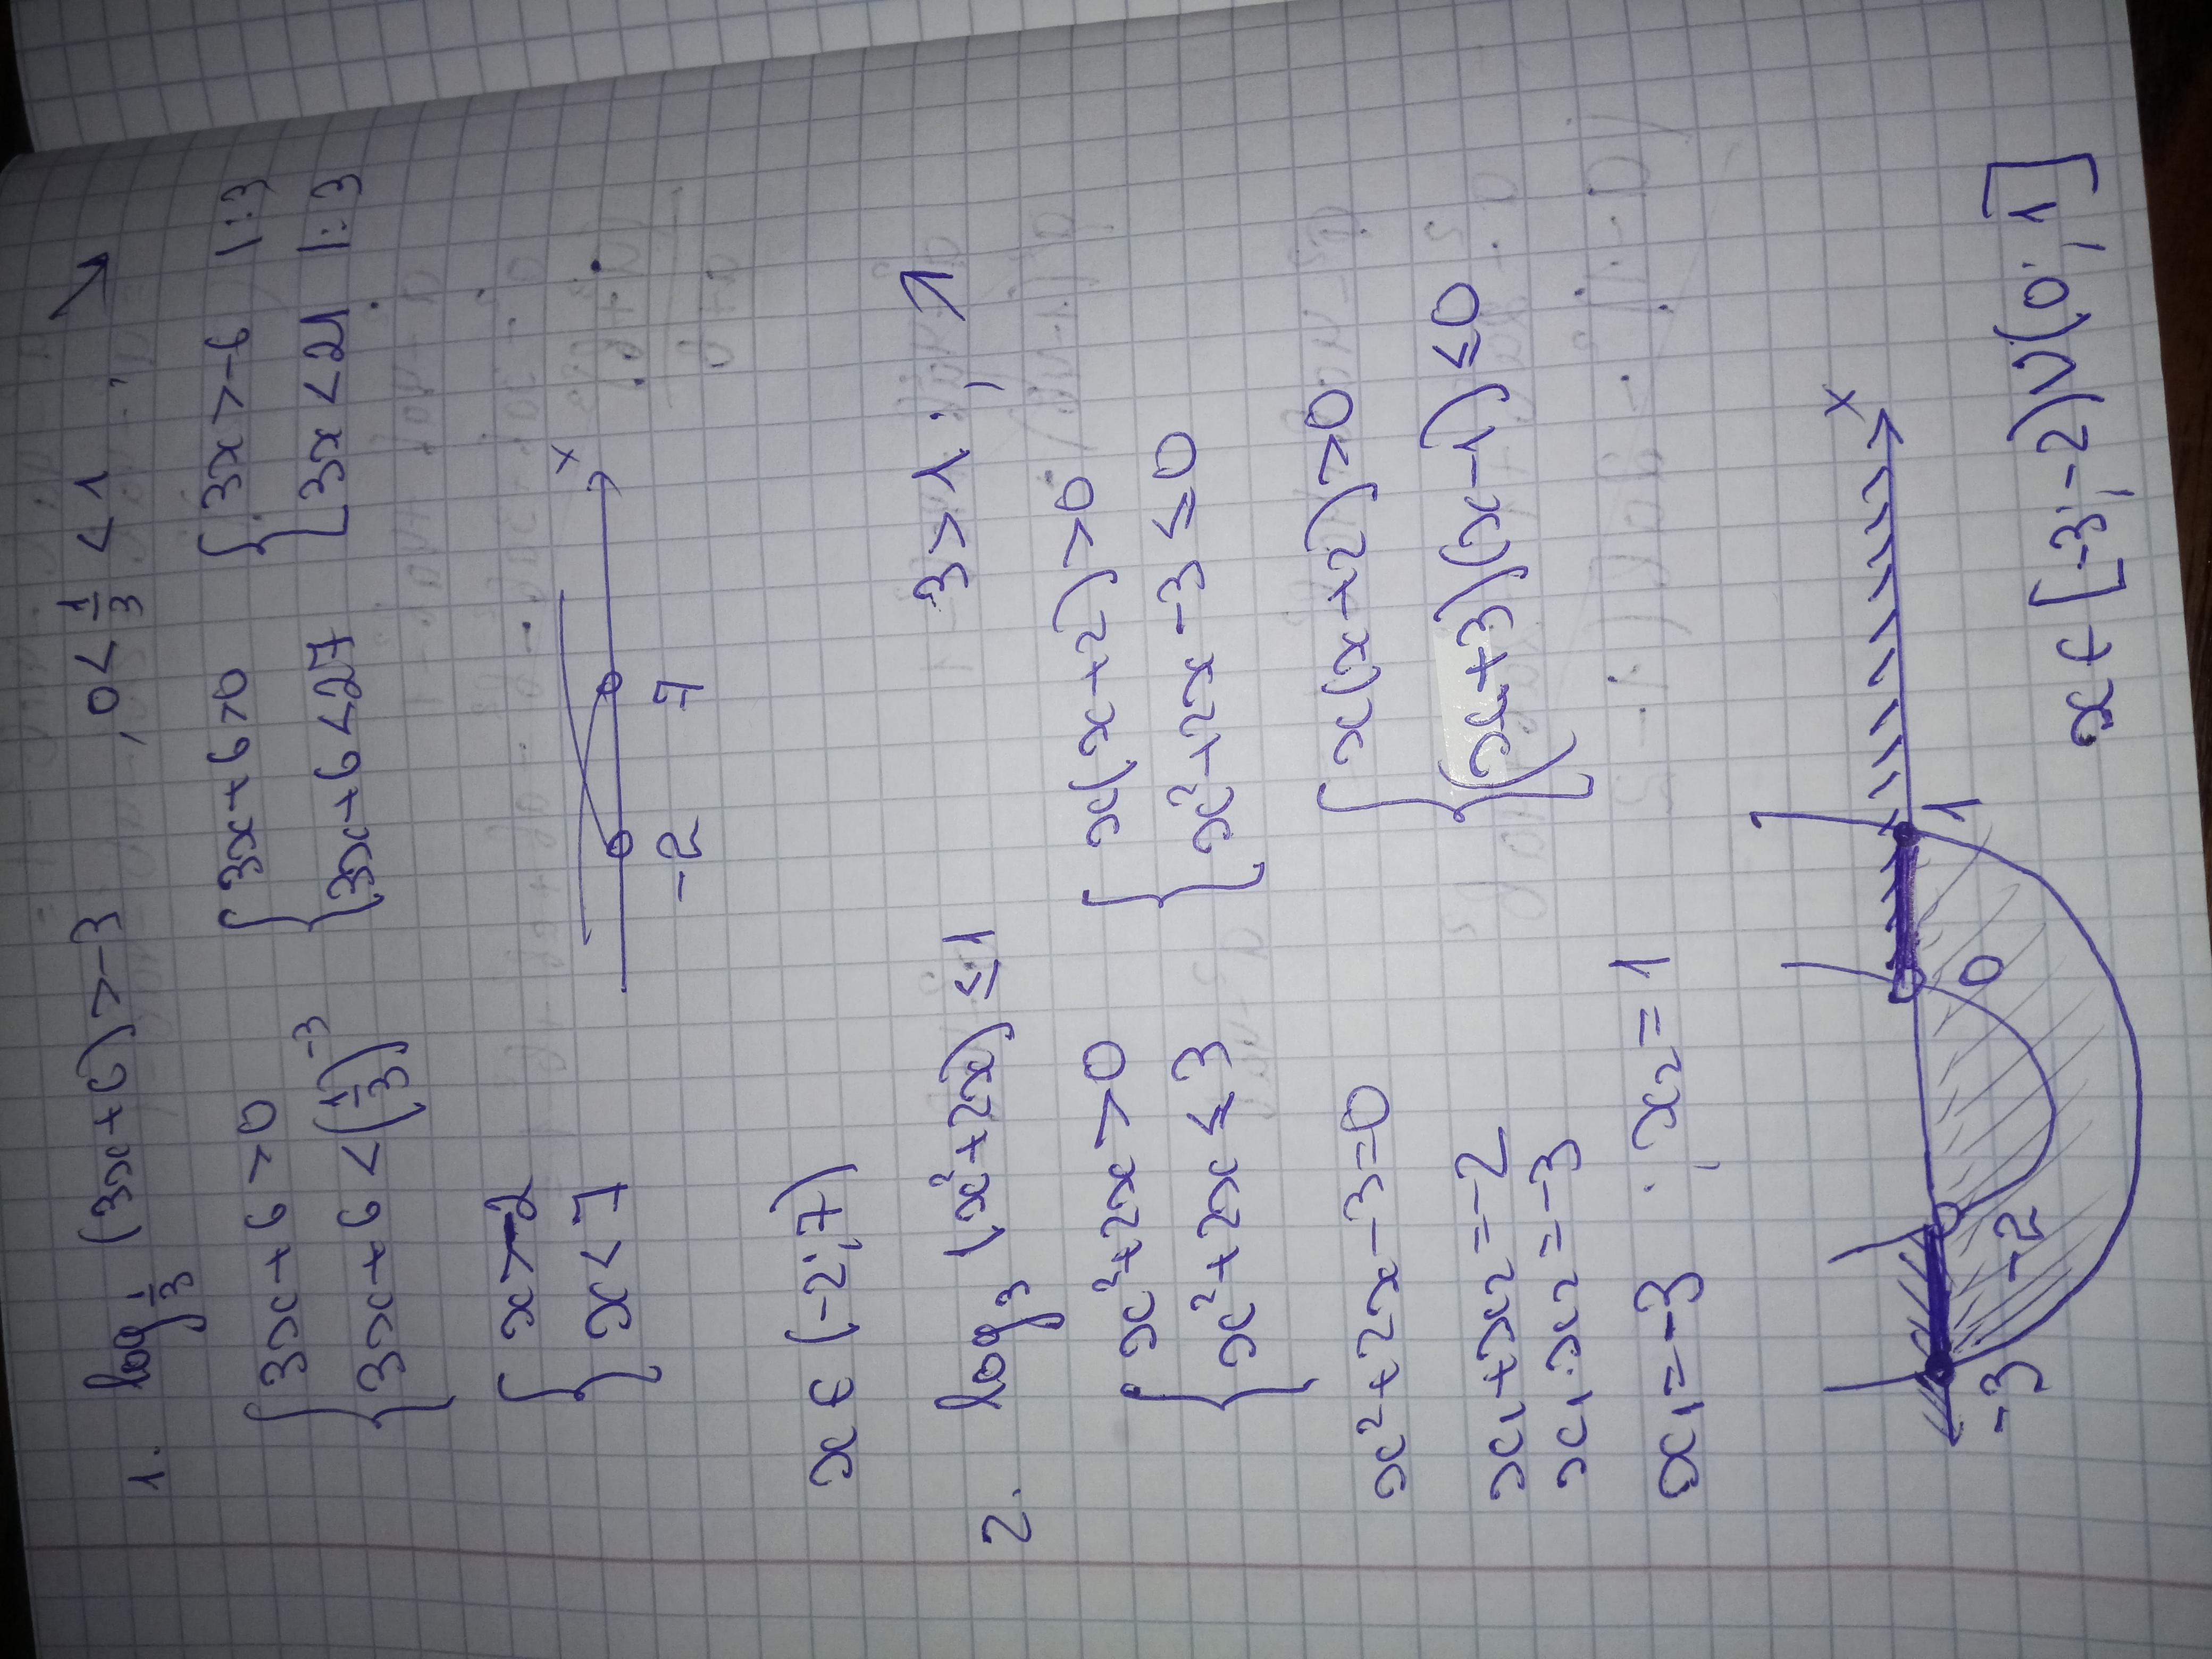 1. log 1/3 (3x+6)>-3 , 0<1/3<1 ↘
{3x+6>0 {3x+6>0 {3x>-6 |:3
{3x+6<(1/3)^-3 {3x+6<27 {3x<21 |:3
{x>-2
{x<7
x
-2 7
x∈(-2;7)
2. log₃(x²+2x)≤1 3>1; ↗
{x²+2x>0 {x(x+2)>0
{x²+2x≤3 {x²+2x-3≤0
x²+2x-3=0 {x(x+2)>0
x₁+x₂=-2 {(x+3)(x-1)≤0
x₁·x₂=-3
x₁=-3 ; x₂=1
x
-3 -2 0 1
x∈[-3;-2)∪(0;1]